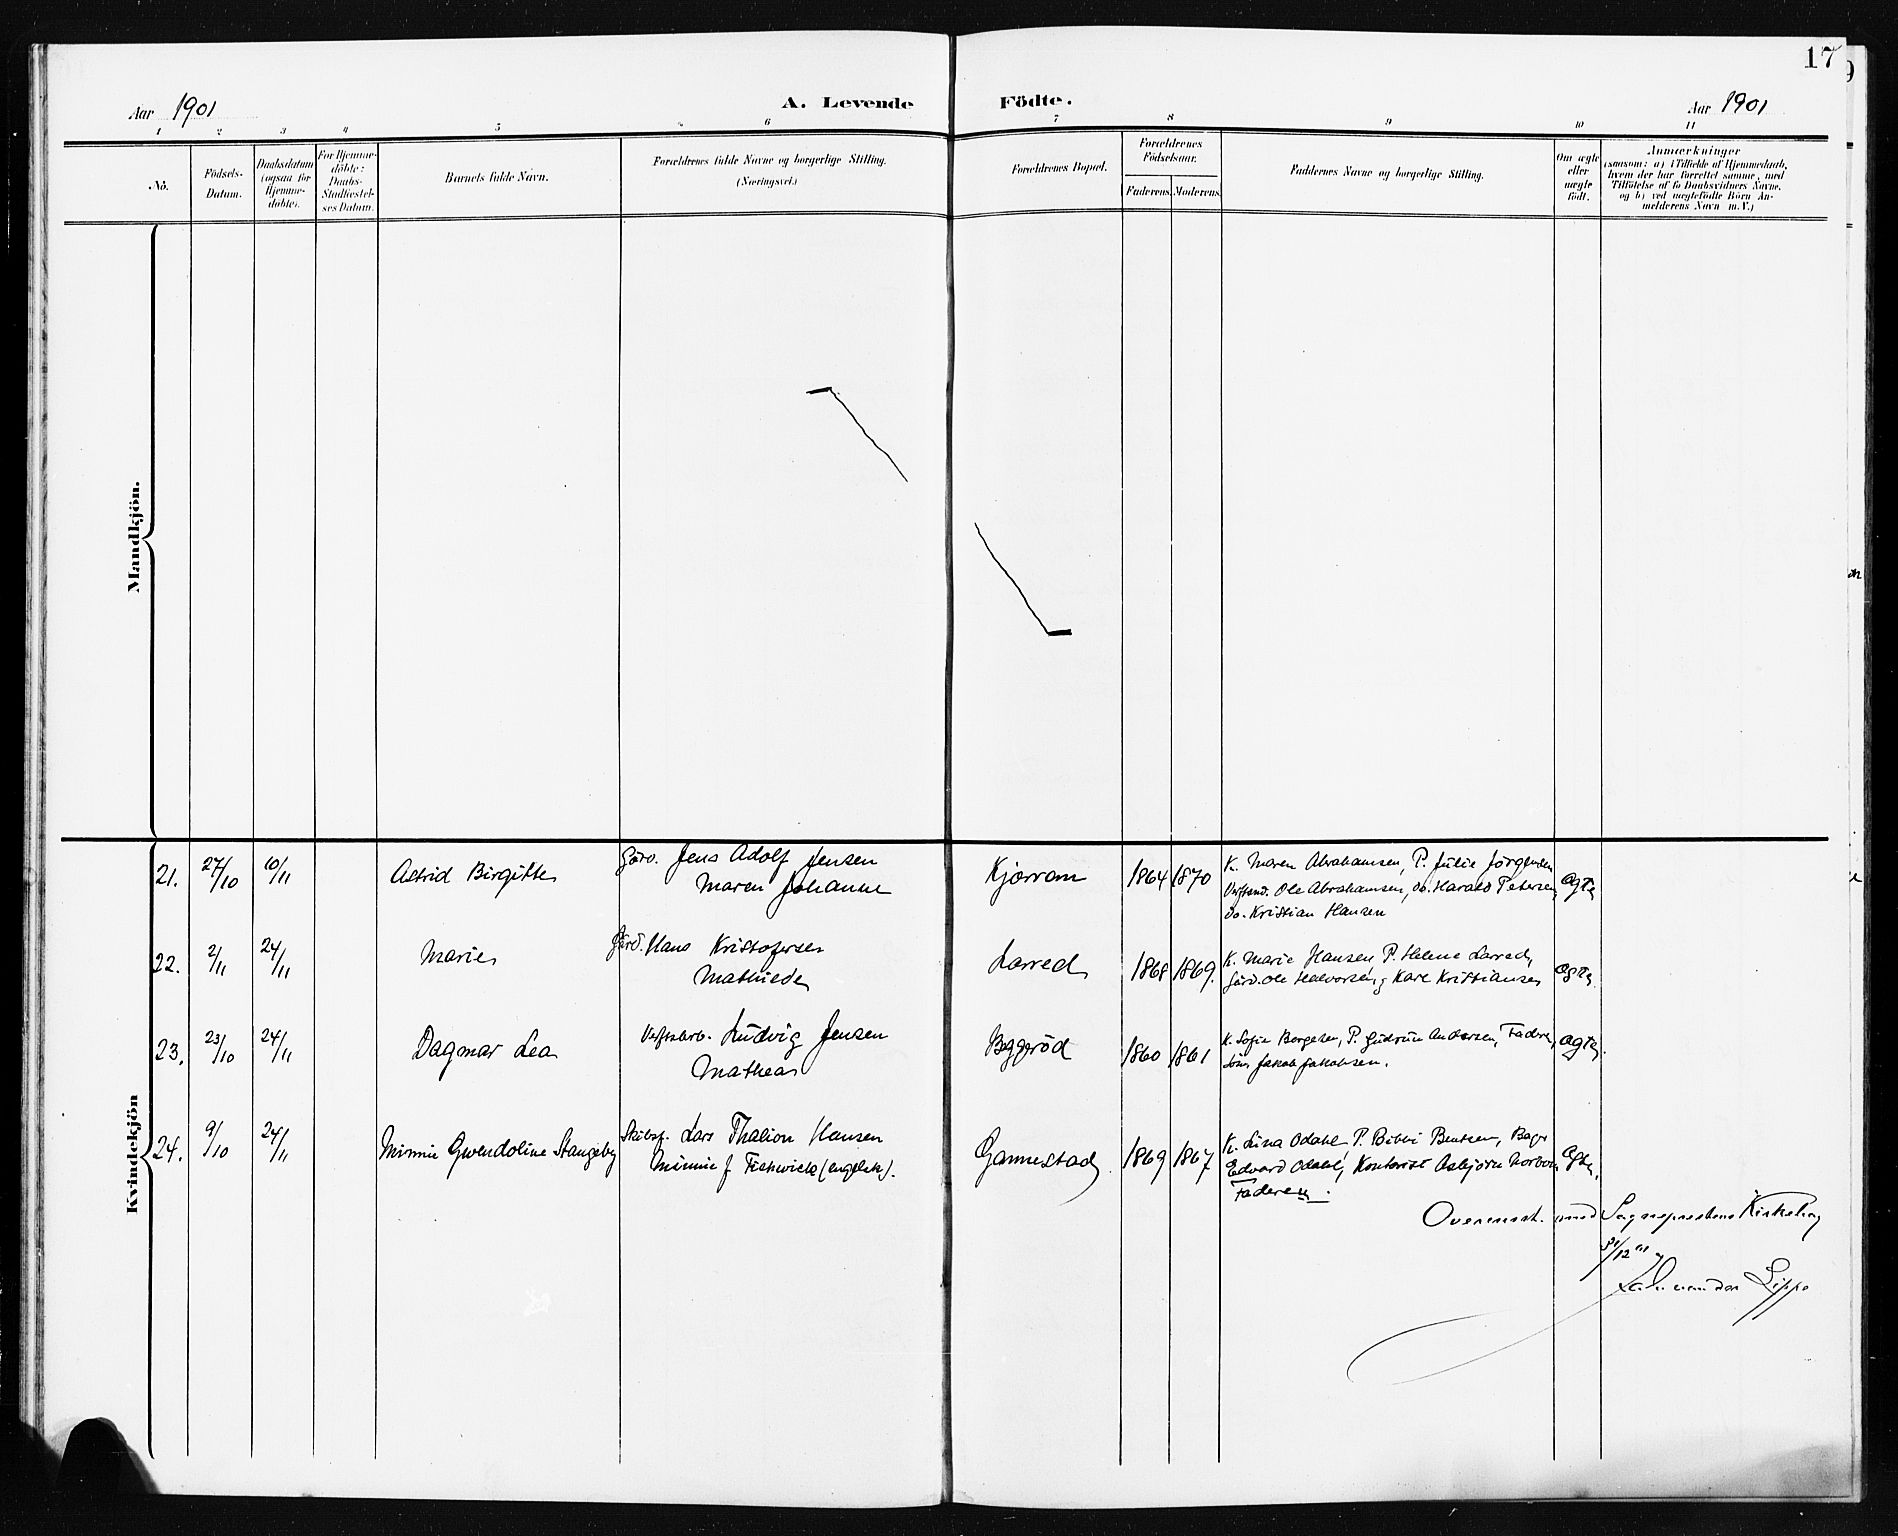 17
Aar 1901
A. Levende Födte.
Aar 1901
1 2 3 4 5 6 7 8 9 10 11
No.
Födsels-
Datum.
Daabsdatum
(ogsaa for
Hjemme-
döbte).
For Hjemme-
döbte:
Daabs-
Stadfæstel-
ses Datum.
Barnets fulde Navn.
Forældrenes fulde Navne og borgerlige Stilling.
(Næringsvei.)
Forældrenes Bopæl.
Forældrenes
Födselsaar.
Faderens. Moderens.
Faddernes Navne og borgerlige Stilling.
Om ægte
eller
uægte
födt.
Anmærkninger
(saasom: a) i Tilfælde af Hjemmedaab,
hvem der har forrettet samme, med
Tilföielse af to Daabsvidners Navne,
og b) ved uægtefödte Börn An-
melderens Navn m. V.)
Mandkjön.
Kvindekjön
21. 27/10 10/11 Astrid Birgitte Gårdbr. Jens Adolf Jensen Kjærran 1864 1870 K. Maren Abrahamsen, P. Julie Jörgensen
Maren Johanne Ole Abrahamsen, do. Harald Petersen, ægte
do. Kristian Hansen
22. 2/11 24/11 Marie Hans Kristofersen Larred 1868 1869. K. Marie Hansen P. Helene Larred,
Mathilde Gård. Ole Halvorsen, Karl Kristiansen ægte
23. 23/10 24/11 Dagmar Lea Verftsarb. Ludvig Jensen Beggeröd 1860 1861 K. Sofie Borgesen, P. Gudrun Andersen, Faderen, ægte
Mathea Jakob Jakobsen.
24. 9/10 24/11 Minnie Gwendoline Stangeby Skibsf. Lars Thalion Hansen Gannestad 1869 1867 K. Lina Odahl, P. Bibbi Bentsen, Bager
Minnie f. Fishwick (engelsk). Edvard Odahl, Kontorist Asbjörn Norbom ægte
Faderen.
Overensst. med Sognepræstens Kirkebog
31/12 01
von der Lippe